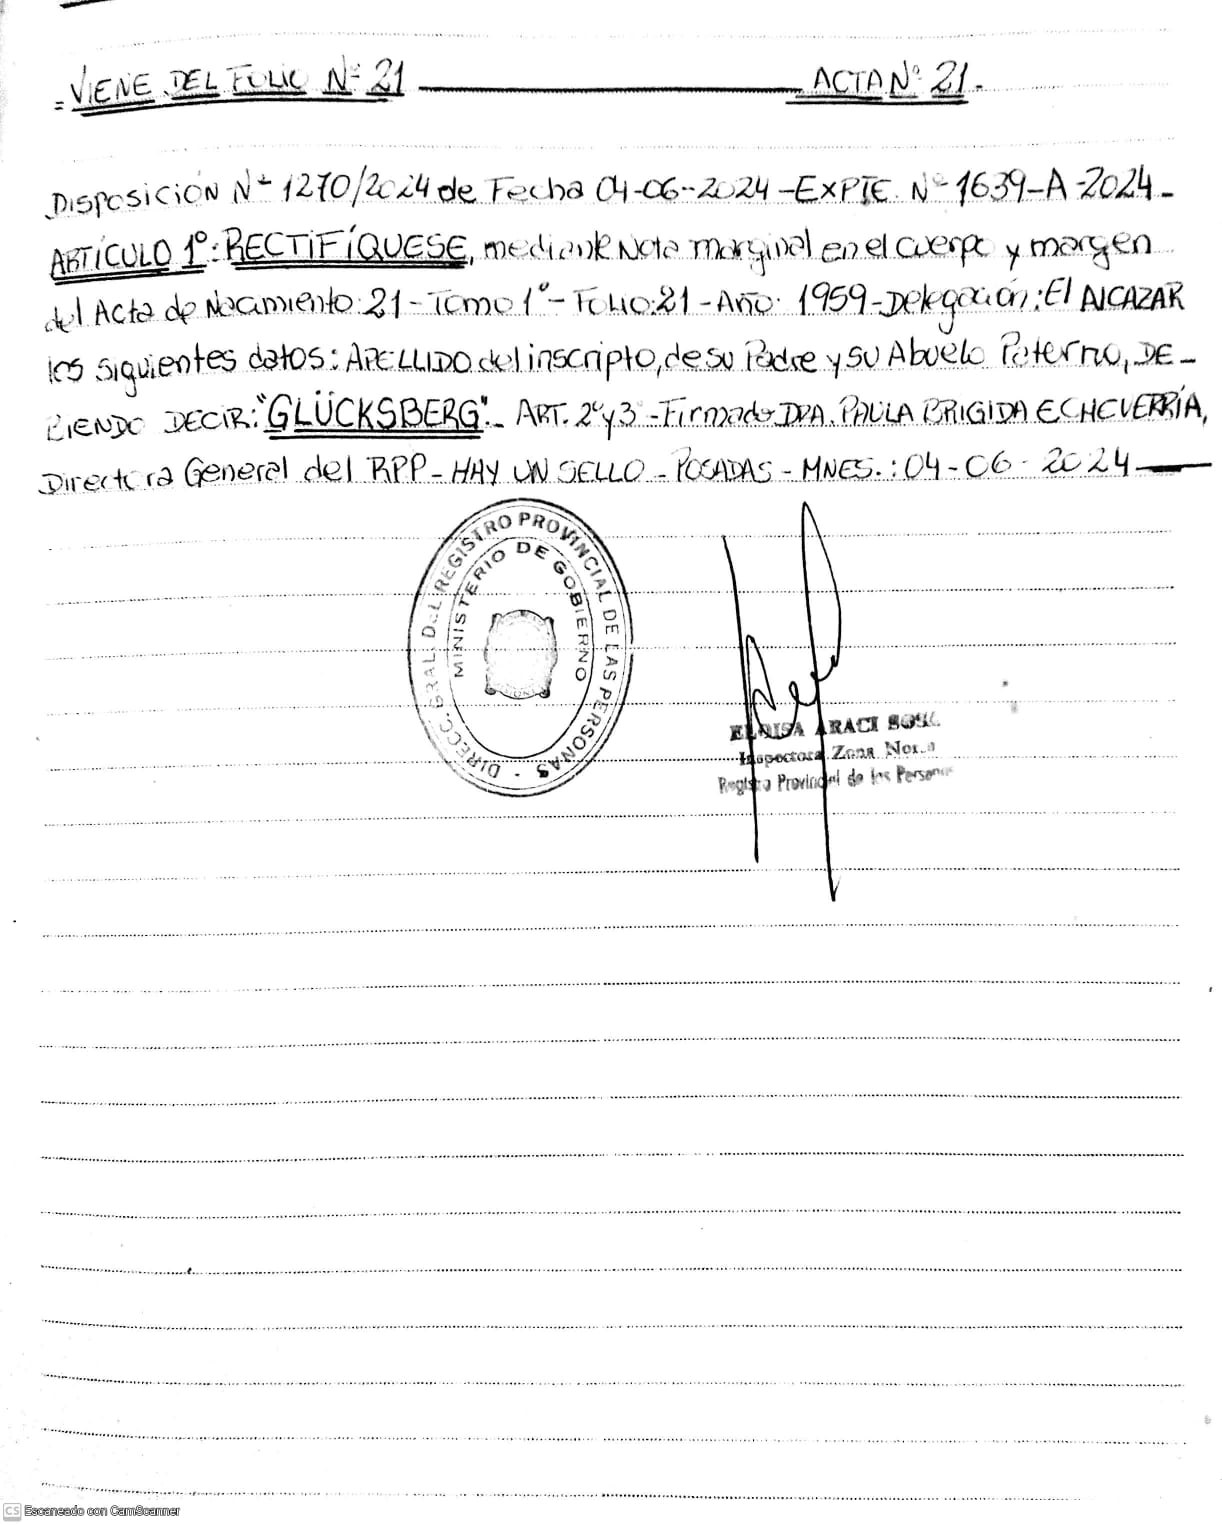 = VIENE DEL FOLIO Nº 21 ACTA Nº 21.-
Disposición Nº 1270/2024 de Fecha 04-06-2024 - EXPTE. Nº 1639-A-2024 -
ARTÍCULO 1º: RECTIFÍQUESE, mediante Nota marginal en el cuerpo y margen
del Acta de Nacimiento: 21 - Tomo 1º - Folio: 21 - Año: 1959 - Delegación: El AlCAZAR
los siguientes datos: APELLIDO del inscripto, de su Padre y su Abuelo Paterno, DE-
BIENDO DECIR: "GLÜCKSBERG". - ART. 2º y 3º - Firmado DRA. PAULA BRIGIDA ECHEVERRÍA,
Directora General del RPP - HAY UN SELLO - POSADAS - MNES.: 04-06-2024
DIRECC. GRAL. DEL REGISTRO PROVINCIAL DE LAS PERSONAS -
MINISTERIO DE GOBIERNO
ELOISA ARACI
Inspectora Zona
Registro Provincial de las Personas
CS Escaneado con CamScanner